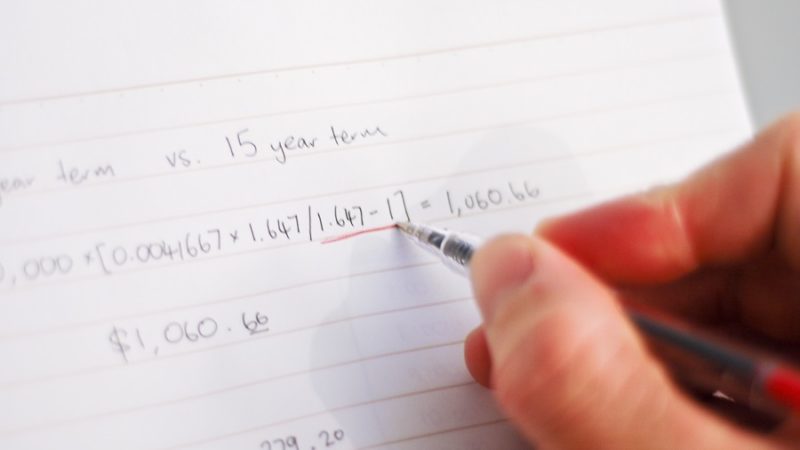 term vs. 15 year term
0,000 × [0.0041667 × 1.647/1.647-1] = 1,060.66
$1,060.66
279.20